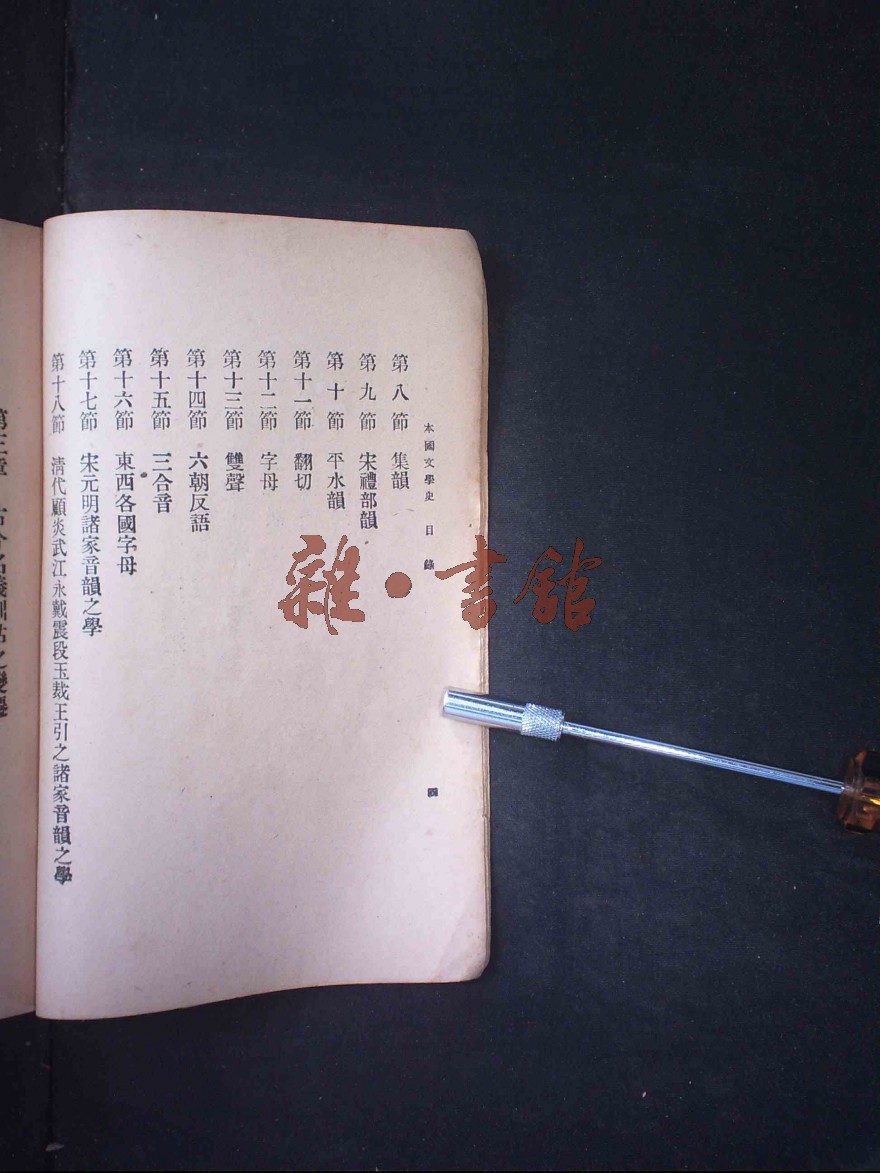 本國文學史 目錄
四
第八節 集韻
第九節 宋禮部韻
第十節 平水韻
第十一節 翻切
第十二節 字母
第十三節 雙聲
第十四節 六朝反語
第十五節 三合音
第十六節 東西各國字母
第十七節 宋元明諸家音韻之學
第十八節 清代顧炎武江永戴震段玉裁王引之諸家音韻之學
第三章 古今名義訓詁之變遷
雜·書館